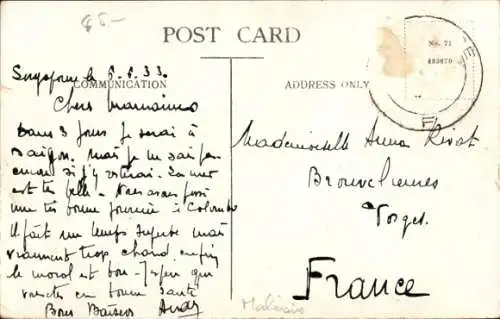 85-
POST CARD
COMMUNICATION
ADDRESS ONLY
No. 71
433870
Singapour le 6.6.33.
Chers
Dans 3 jours je serai à
Saigon. Mais je ne sais pas
encore si j'y resterai. La mer
est très belle. Nous avons passé
une très bonne journée à Colombo
Il fait un temps superbe mais
vraiment trop chaud. enfin
le moral est bon - J'espère que
vous êtes en bonne santé
Bons Baisers
Mademoiselle Anna
Vosges.
France
Malaisie